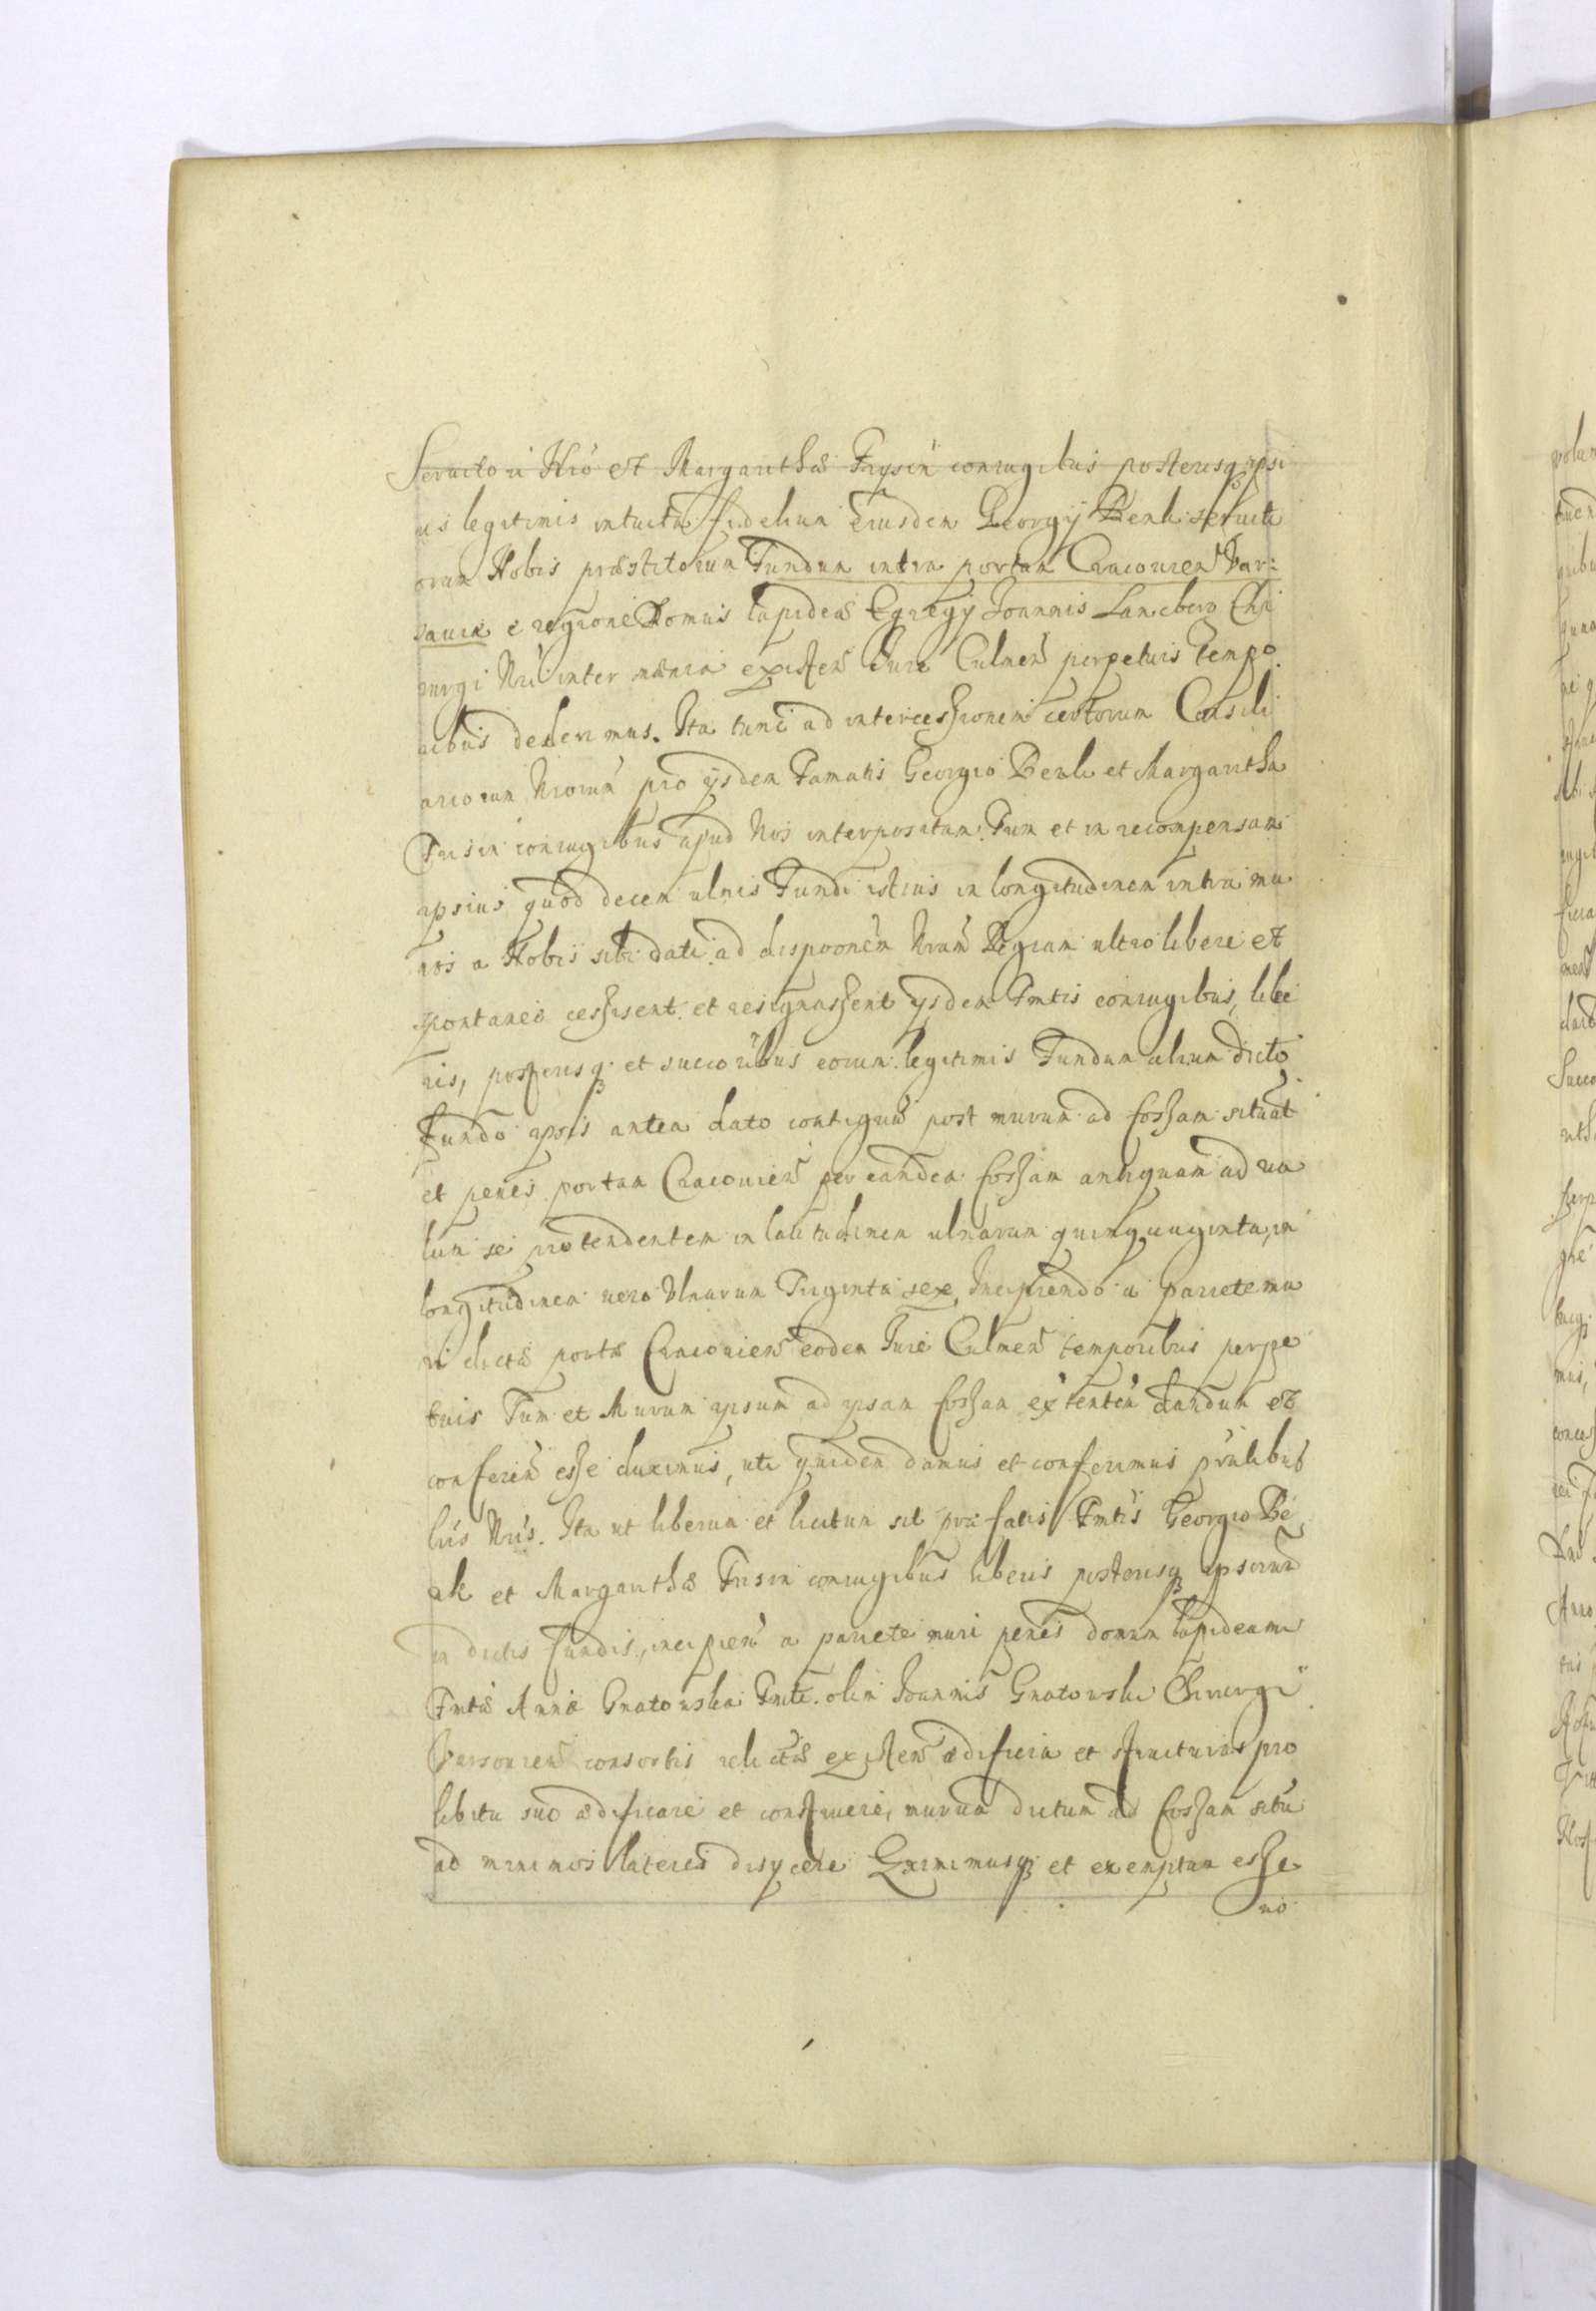 Servitori Nrõ et Margarethæ Frysin coniugibus posterisq ipsi
us legitimis intuitu fidelium eiusdem Georgij Benk seruiti
orum Nobis præstitorum Fundum intra portam Cracouien Var:
sauiæ e regione Domus lapideæ Egregij Joannis Lanckbero Chi
rurgi Nri inter mænia existen Jure Culmen perpetuis Tempo
ribus dederimus. Ita tunc ad intercessionem certorum Consili
ariorum Nrorum pro ijsdem Famatis Georgio Benk et Margaretha
Frisin coniugibus apud Nos interpositam. Tum et in recompensam
ipsius quod decem ulnis Fundi istius in longitudinem intra mu
ros a Nobis sibi dati ad disponem Nram Regiam ultro libere et
spontanee cessissent et resignassent ijsdem Fmtis coniugibus, libe
ris, posterisq et succoribus eorum legitimis Fundum alium dicto
fundo ipsis antea dato contiguũ post murum ad fossam situat
et penes portam Cracouien per eandem fossam antiquam ad ua
lum se protendentem in latitudinem ulnarum quinquaginta, in
longitudinem uero Ulnarum Triginta sex, Incipiendo a pariete mu
ri dictæ portæ Cracouien eodem Jure Culmen temporibus perpe
tuis Tum et Murum ipsum ad ipsam fossam extenten dandum et
conferen esse duximus, uti quidem damus et conferimus prntibus
lris Nris. Ita ut liberum et licitum sit præfatis Fmtis Georgio Be
nk et Margarethæ Frisin coniugibus liberis posterisq ipsorum
in dictis fundis, incipien a pariete muri penes domum lapideam
Fmtæ Annæ Gnatowska Fmti olim Joannis Gnatowski Chirurgi
Varsouien consortis relictæ existen ædificia et structuras pro
libitu suo ædificare et construere, murum dictum ad fossam situ
ad minimos lateres disijcere Eximimusq et exemptam esse
uo